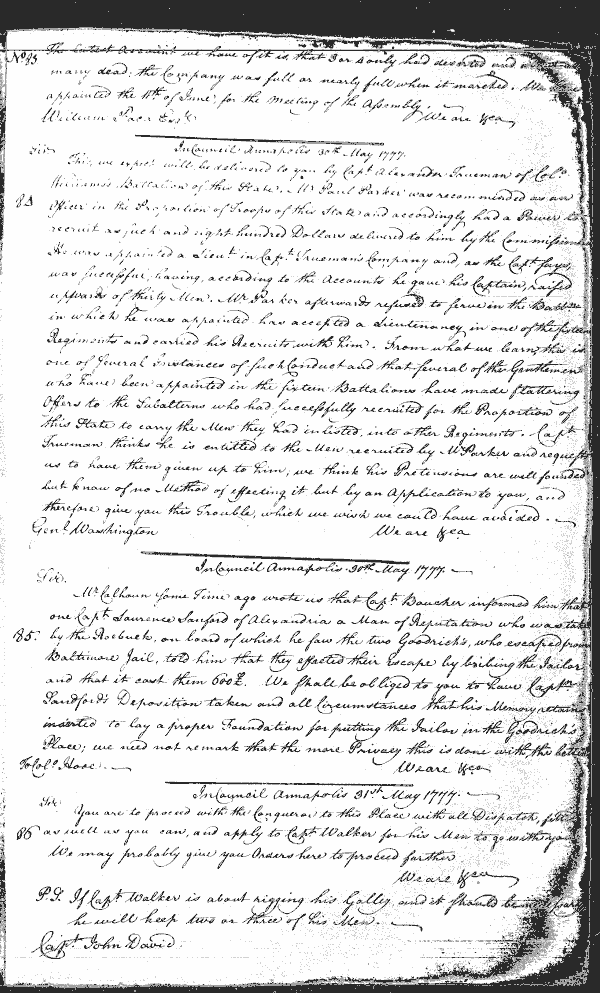 No 83 The latest Account we have of it is, that 3 or 4 only had deserted and
many dead; the Company was full or nearly full when it marched.
appointed the 11th of June, for the Meeting of the Assembly.
William Paca Esqr. We are &ca
In Council Annapolis 30th May 1777.
Sir.
This, we expect will be delivered to you by Capt Alexander Trueman of Colo.
Williams's Battalion of this State. Mr Paul Parker was recommended as an
84 Officer in the Proportion of Troops of this State and accordingly had a Power to
recruit as such and eight hundred Dollars delivered to him by the Commissioners
He was appointed a Lieut. in Capt Trueman's Company and, as the Capt says,
was successful, having, according to the Accounts he gave his Captain, raised
upwards of thirty Men. Mr Parker afterwards refused to serve in the
in which he was appointed has accepted a Lieutenancy, in one of the sixteen
Regiments and carried his Recruits with him. From what we learn, this is
one of several Instances of such Conduct and that several of the Gentlemen
who have been appointed in the sixteen Battalions have made flattering
Offers to the Subalterns who had successfully recruited for the Proportion of
this State to carry the Men they had inlisted, into other Regiments. Capt
Trueman thinks he is entitled to the Men recruited by Mr Parker and requests
us to have them given up to him; we think his Pretensions are well founded
but know of no Method of effecting it but by an Application to you, and
therefore give you this Trouble, which we wish we could have avoided.
Genl. Washington We are &ca
In Council Annapolis 30th May 1777.
Sir.
Mr Calhoun some Time ago wrote us that Capt Boucher informed him that
one Capt Laurence Sanford of Alexandria a Man of Reputation who was taken
85. by the Roebuck, on board of which he saw the two Goodrich's, who escaped from
Baltimore Jail, told him that they effected their Escape by bribing the Jailor
and that it cost them 600£. We shall be obliged to you to have Captn
Sandford's Deposition taken and all Circumstances that his Memory retains
inserted to lay a proper Foundation for putting the Jailor in the Goodrich's
Place; we need not remark that the more Privacy this is done with, the better
To Colo. Hooe. We are &ca
In Council Annapolis 31st May 1777.
Sir
You are to proceed with the Conqueror to this Place with all Dispatch,
86 as well as you can, and apply to Capt Walker for his Men to go with you
We may probably give you Orders here to proceed farther
We are &ca
P.S. If Capt Walker is about rigging his Galley, and it should be necessary
he will keep two or three of his Men.
Capt. John David.